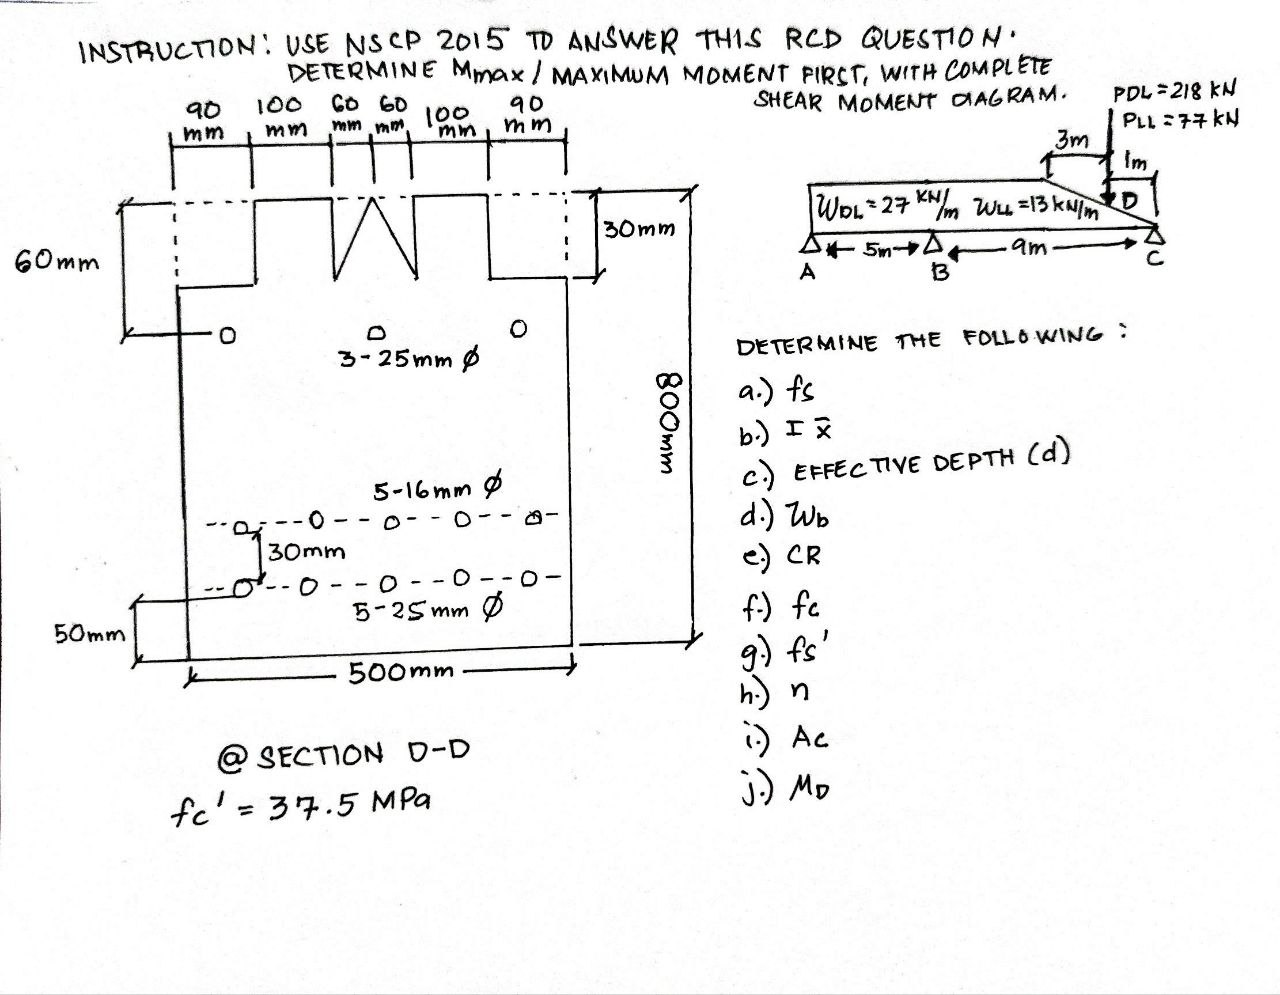 INSTRUCTION: USE NSCP 2015 TO ANSWER THIS RCD QUESTION.
DETERMINE Mmax / MAXIMUM MOMENT FIRST, WITH COMPLETE
SHEAR MOMENT DIAGRAM.
90 mm
100 mm
60 mm
60 mm
100 mm
90 mm
60mm
30mm
3-25mm ϕ
800mm
5-16mm ϕ
30mm
5-25mm ϕ
50mm
500mm
@ SECTION D-D
fc' = 37.5 MPa
PDL = 218 KN
PLL = 77 KN
3m
1m
WDL = 27 KN/m WLL = 13 KN/m
D
5m
9m
A
B
C
DETERMINE THE FOLLOWING:
a.) fs
b.) I x̄
c.) EFFECTIVE DEPTH (d)
d.) Wb
e.) CR
f.) fc
g.) fs'
h.) n
i.) Ac
j.) MD